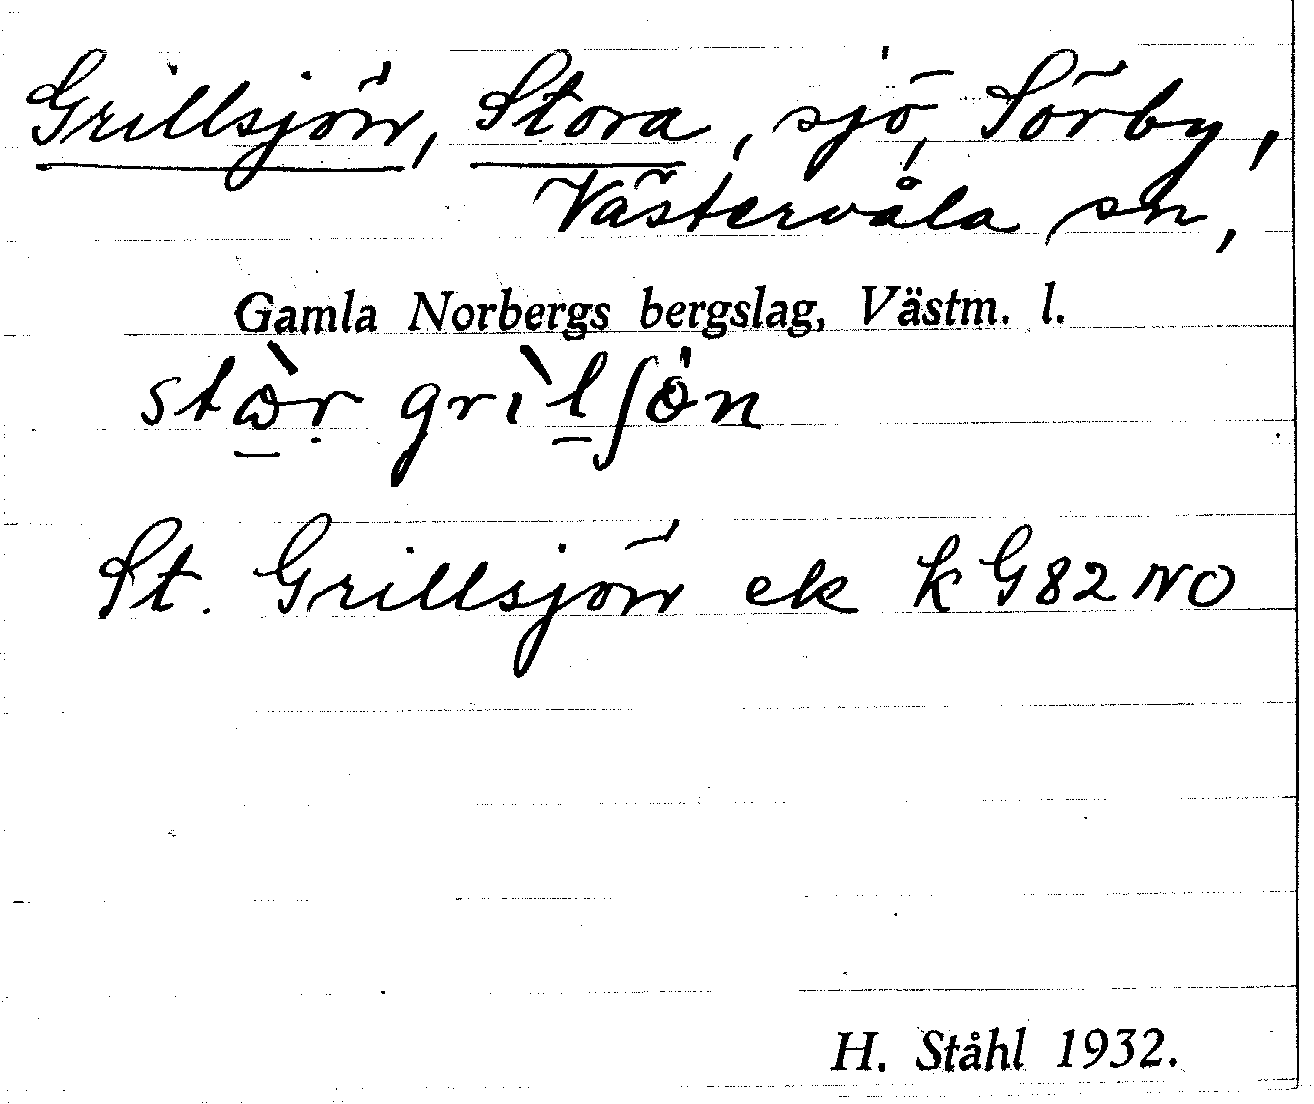 Grillsjön, Stora, sjö, Sörby,
Västervåla sn,
Gamla Norbergs bergslag, Västm. l.
St. Grillsjön ek k G82 NO
H. Ståhl 1932.